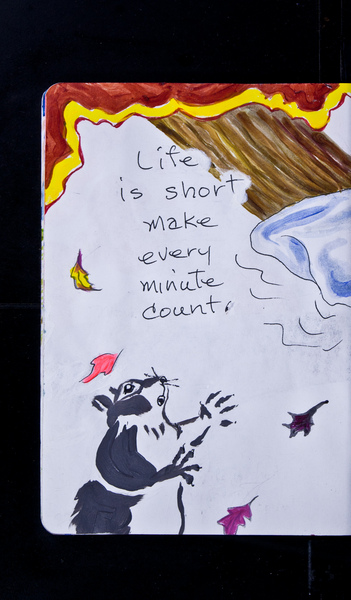 Life
is short
make
every
minute
count.